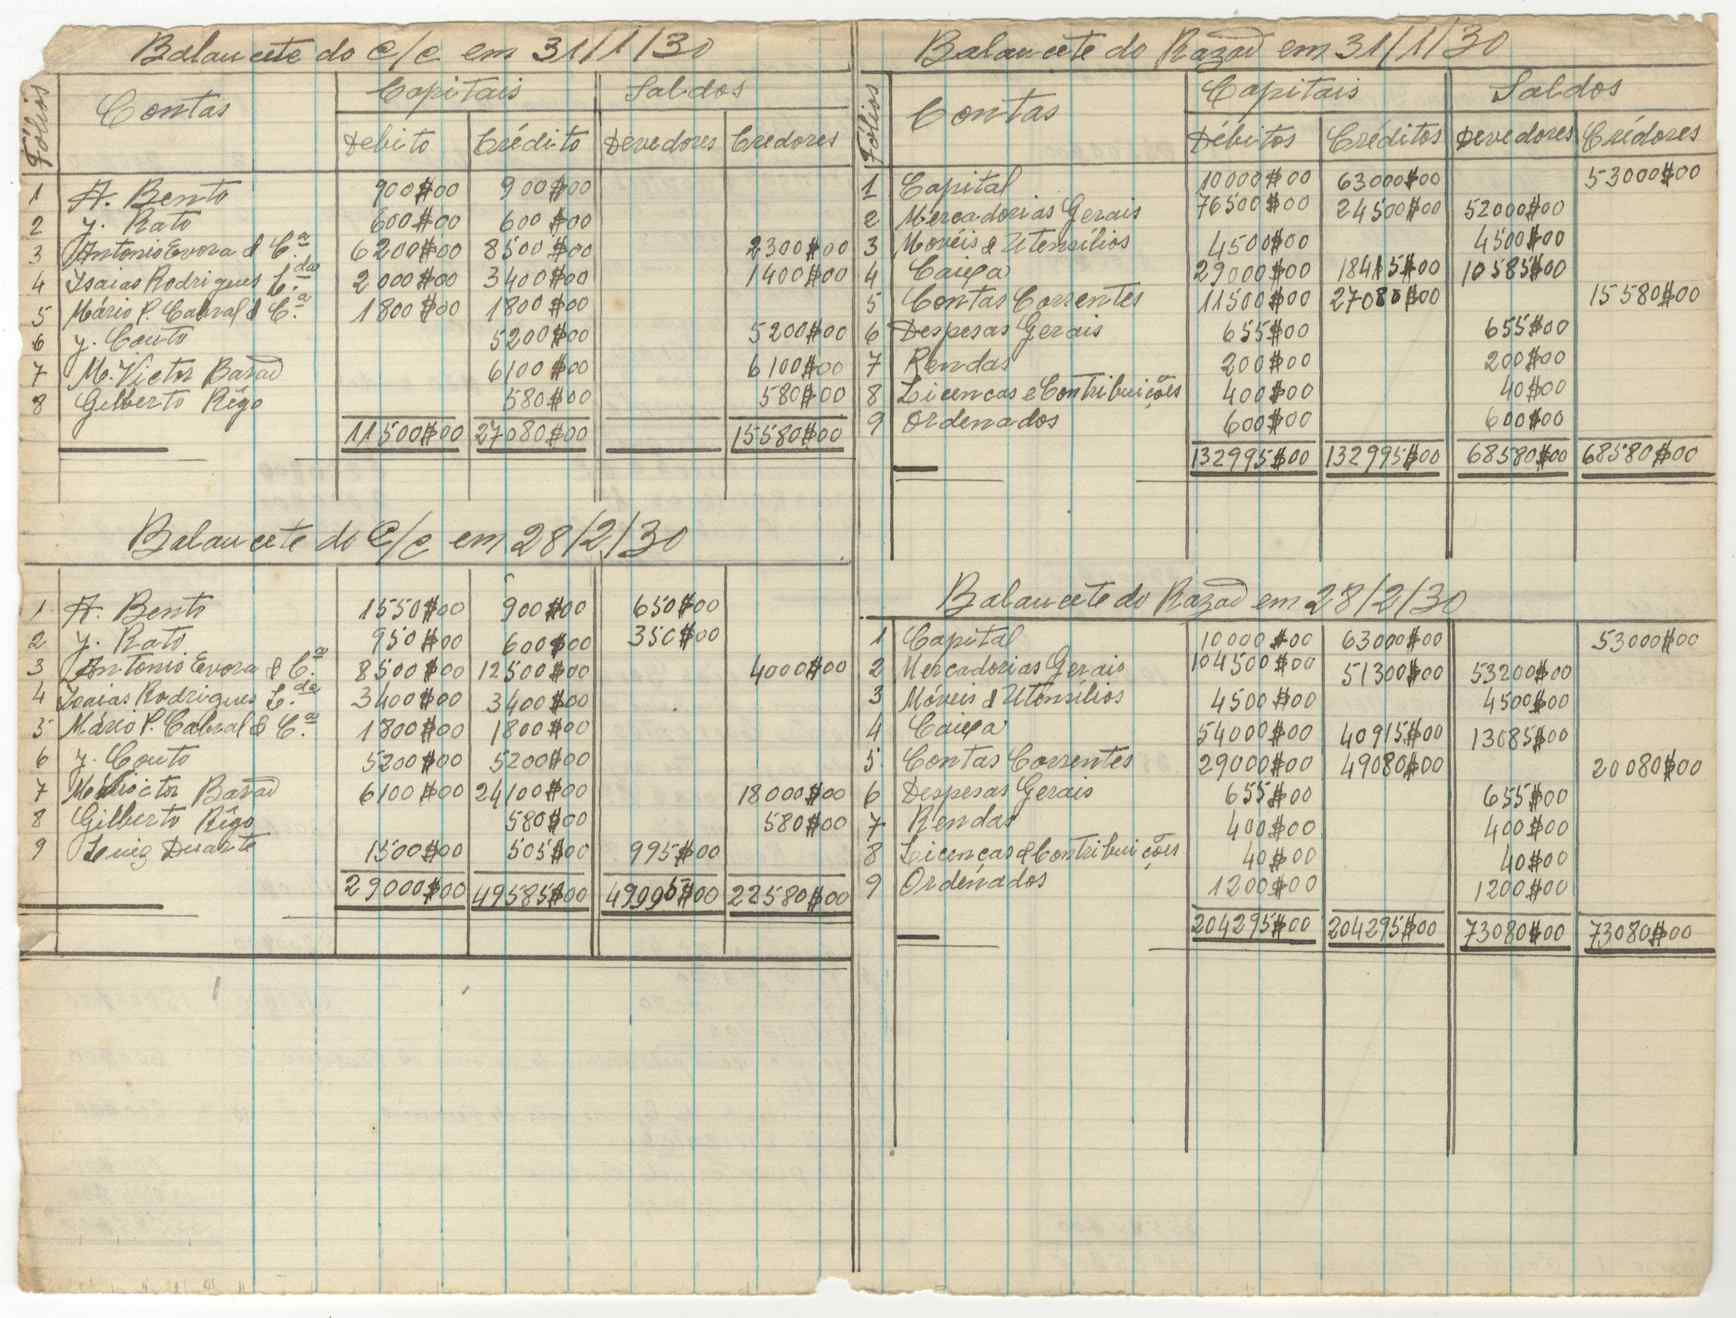 Balancete do C/C em 31/1/30
Fólios Contas Capitais Saldos
Débito Crédito Devedores Credores
1 A. Bento 900$00 900$00
2 J. Rato 600$00 600$00
3 Antonio Evora & C.ª 6200$00 8500$00 2300$00
4 Isaias Rodrigues L.da 2000$00 3400$00 1400$00
5 Mário P. Cabral & C.ª 1800$00 1800$00
6 J. Couto 5200$00 5200$00
7 M. Victor Barão 6100$00 6100$00
8 Gilberto Rêgo 580$00 580$00
11500$00 27080$00 15580$00
Balancete do C/C em 28/2/30
1 A. Bento 1550$00 900$00 650$00
2 J. Rato 950$00 600$00 350$00
3 Antonio Evora & C.ª 8500$00 12500$00 4000$00
4 Isaias Rodrigues L.da 3400$00 3400$00
5 Mário P. Cabral & C.ª 1800$00 1800$00
6 J. Couto 5200$00 5200$00
7 M. Victor Barão 6100$00 24100$00 18000$00
8 Gilberto Rêgo 580$00 580$00
9 Luiz Duarte 1500$00 505$00 995$00
29000$00 49585$00 22580$00
Balancete do Razão em 31/1/30
Fólios Contas Capitais Saldos
Débitos Créditos Devedores Crédores
1 Capital 10000$00 63000$00 53000$00
2 Mercadorias Gerais 76500$00 24500$00 52000$00
3 Movéis & Utensílios 4500$00 4500$00
4 Caixa 29000$00 18415$00 10585$00
5 Contas Correntes 11500$00 27080$00 15580$00
6 Despesas Gerais 655$00 655$00
7 Rendas 200$00 200$00
8 Licencas e Contribuições 400$00 40$00
9 Ordenados 600$00 600$00
132995$00 132995$00 68580$00 68580$00
Balancete do Razão em 28/2/30
1 Capital 10000$00 63000$00 53000$00
2 Mercadorias Gerais 104500$00 51300$00 53200$00
3 Móveis & Utensílios 4500$00 4500$00
4 Caixa 54000$00 40915$00 13085$00
5 Contas Correntes 29000$00 49080$00 20080$00
6 Despesas Gerais 655$00 655$00
7 Rendas 400$00 400$00
8 Licenças & Contribuições 40$00 40$00
9 Ordenados 1200$00 1200$00
204295$00 204295$00 73080$00 73080$00